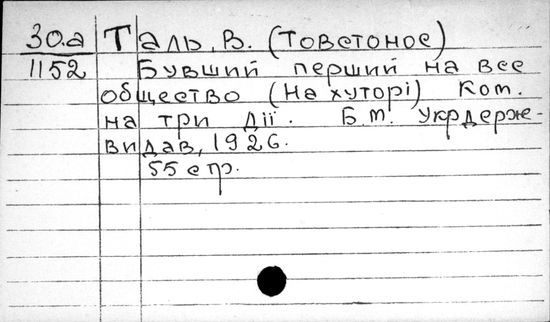 30.а Таль, В. (Товстонос)
1152 Бувший перший на все
общество (На хуторі) Ком.
на три дії. Б.м. Укрдерж-
видав, 1926.
55 стр.